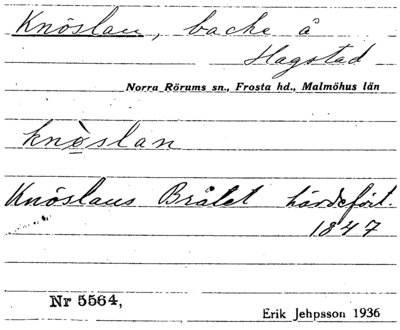 Knöslan, backe å
Hagstad
Norra Rörums sn., Frosta hd., Malmöhus län
knö̀slan
Knöslans Brålet härdefört.
1847
Nr 5564,
Erik Jehpsson 1936